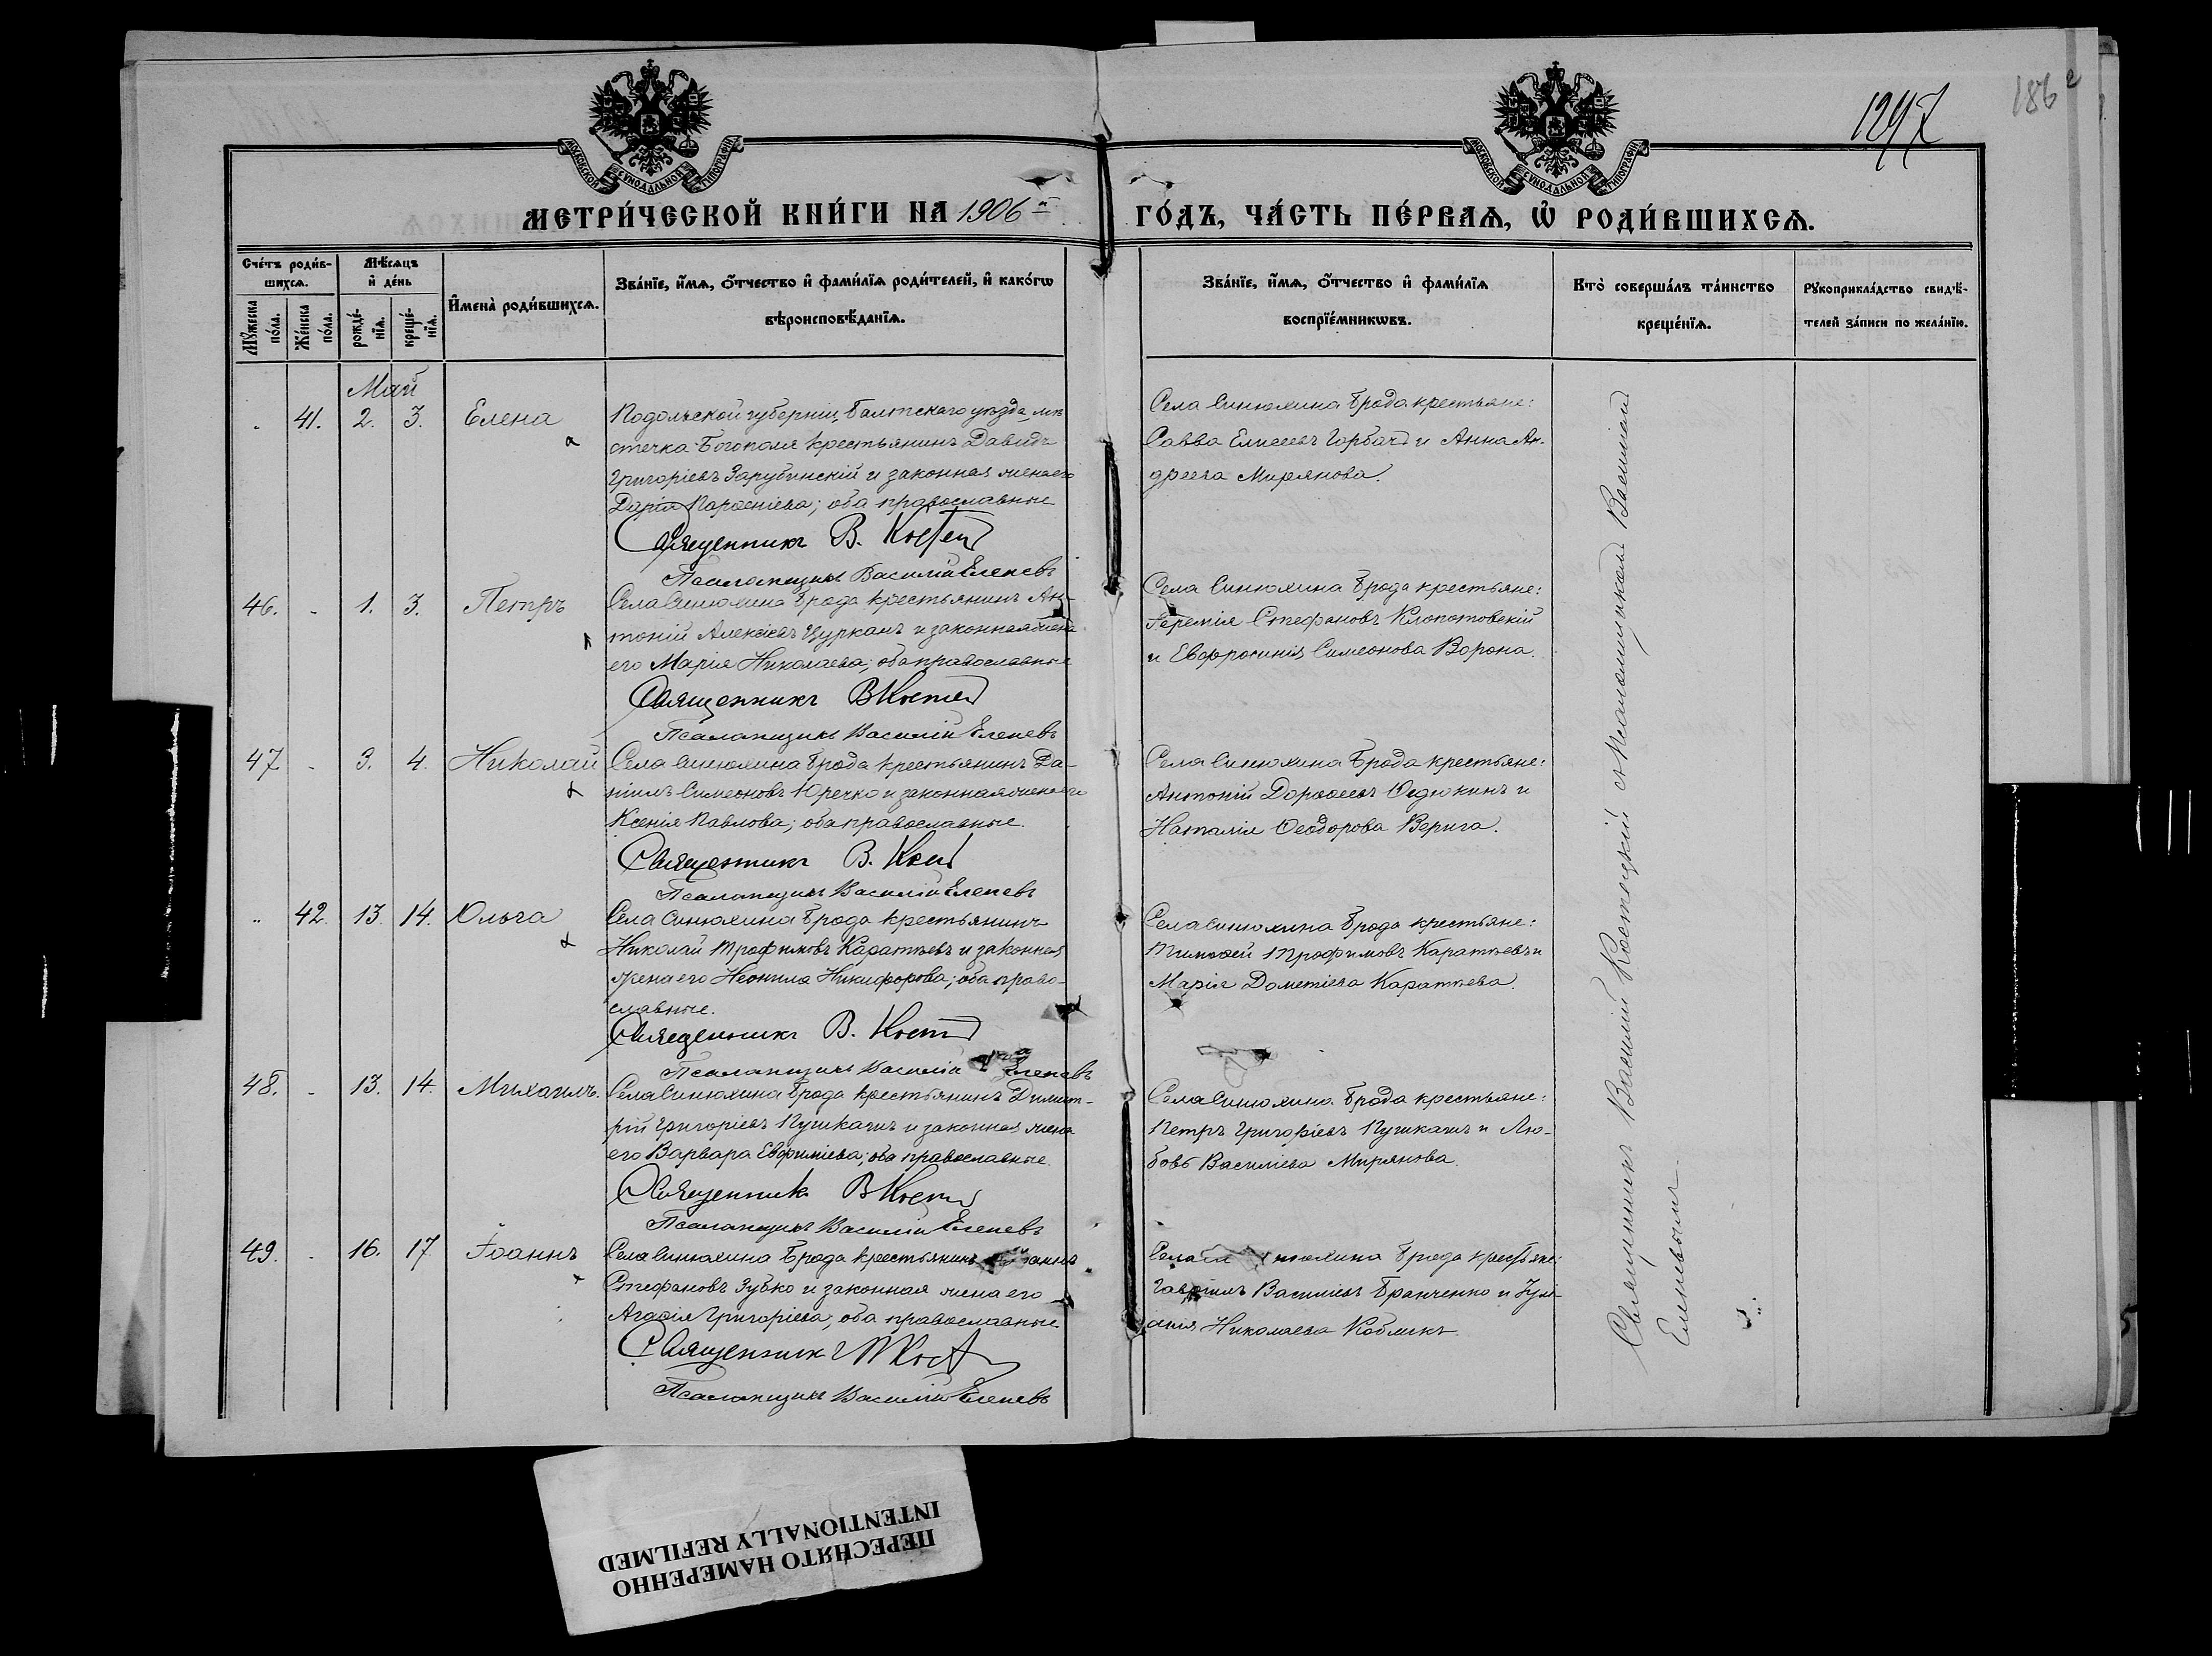 1247
186
МОСКОВСКОЙ СѴНОДАЛЬНОЙ ТИПОГРАФІИ
МОСКОВСКОЙ СѴНОДАЛЬНОЙ ТИПОГРАФІИ
МЕТРИ́ЧЕСКОЙ КНИ́ГИ НА 1906 й
ГО́ДЪ, ЧА́СТЬ ПЕ́РВАѦ, Ѽ РОДИ́ВШИХСѦ.
Сче́тъ роди́в-
шихсѧ.
Мꙋжеска по́ла.
Же́нска по́ла.
Мѣ́сѧцъ
и҆ де́нь
рожде́-
нїѧ.
креще́-
нїѧ.
И҆мена̀ роди́вшихсѧ.
Зва́нїе, и҆́мѧ, ѻ҆́тчество и҆ фами́лїѧ роди́телей, и҆ како́гѡ
вѣроисповѣ́данїѧ.
Зва́нїе, и҆́мѧ, ѻ҆́тчество и҆ фами́лїѧ
воспрїе́мникѡвъ.
Кто̀ соверша́лъ та́инство
креще́нїѧ.
Рꙋкоприкла́дство свидѣ́-
телей за́писи по жела́нїю.
Май
41. 2. 3. Елена
Подольской губерніи, Балтскаго уѣзда, мѣ-
стечка Богополя крестьянинъ Давидъ
Григоріевъ Зарубинскій и законная жена его
Дарія; оба православные
Священникъ В. Кост
Псаломщикъ Василій Еленевъ
Села Синюхина Брода крестьяне:
Савва Елисеевъ Горбачъ и Анна Ан-
дреева Мирянова.
46. - 1. 3. Петръ
Села Синюхина Брода крестьянинъ Ан-
тоній Алексѣевъ Цурканъ и законная жена
его Марія Николаева; оба православные
Священникъ В Кост
Псаломщикъ Василій Еленевъ
Села Синюхина Брода крестьяне:
Іеремія Стефановъ Клопотовскій
и Евфросинія Симеонова Ворона.
47 - 3. 4. Николай
Села Синюхина Брода крестьянинъ Да-
ніилъ Симеоновъ Юречко и законная жена его
Ксенія Павлова; оба православные.
Священникъ В. Кост
Псаломщикъ Василій Еленевъ
Села Синюхина Брода крестьяне:
Антоній и
Наталія Ѳеодорова Верига.
42. 13. 14. Ольга
Села Синюхина Брода крестьянинъ
Николай Трофимовъ Каратѣевъ и законная
жена его Неонила Никифорова; оба право-
славные.
Священникъ В. Кост
Псаломщикъ Василій Еленевъ
Села Синюхина Брода крестьяне:
Тимоѳей Трофимовъ Каратѣевъ и
Марія Дометіева Каратѣева.
48. - 13. 14. Михаилъ.
Села Синюхина Брода крестьянинъ Димит-
рій Григоріевъ Пушкашъ и законная жена
его Варвара Евфиміева; оба православные.
Священникъ В Кост
Псаломщикъ Василій Еленевъ
Села Синюхина Брода крестьяне:
Петръ Григоріевъ Пушкашъ и Лю-
бовь Василіева Мирянова.
49. - 16. 17 Іоаннъ
Села Синюхина Брода крестьянинъ
Стефановъ Зубко и законная жена его
Агаѳія Григоріева, оба православные.
Священникъ В Кост
Псаломщикъ Василій Еленевъ
Села Синюхина Брода крестьяне:
Гавріилъ Василіевъ Бранченко и Іулі-
анія Николаева Кобликъ.
Священникъ Василій Костецкій съ Псаломщикомъ Василіемъ
Еленевымъ
ПЕРЕСНЯТО НАМЕРЕННО
INTENTIONALLY REFILMED